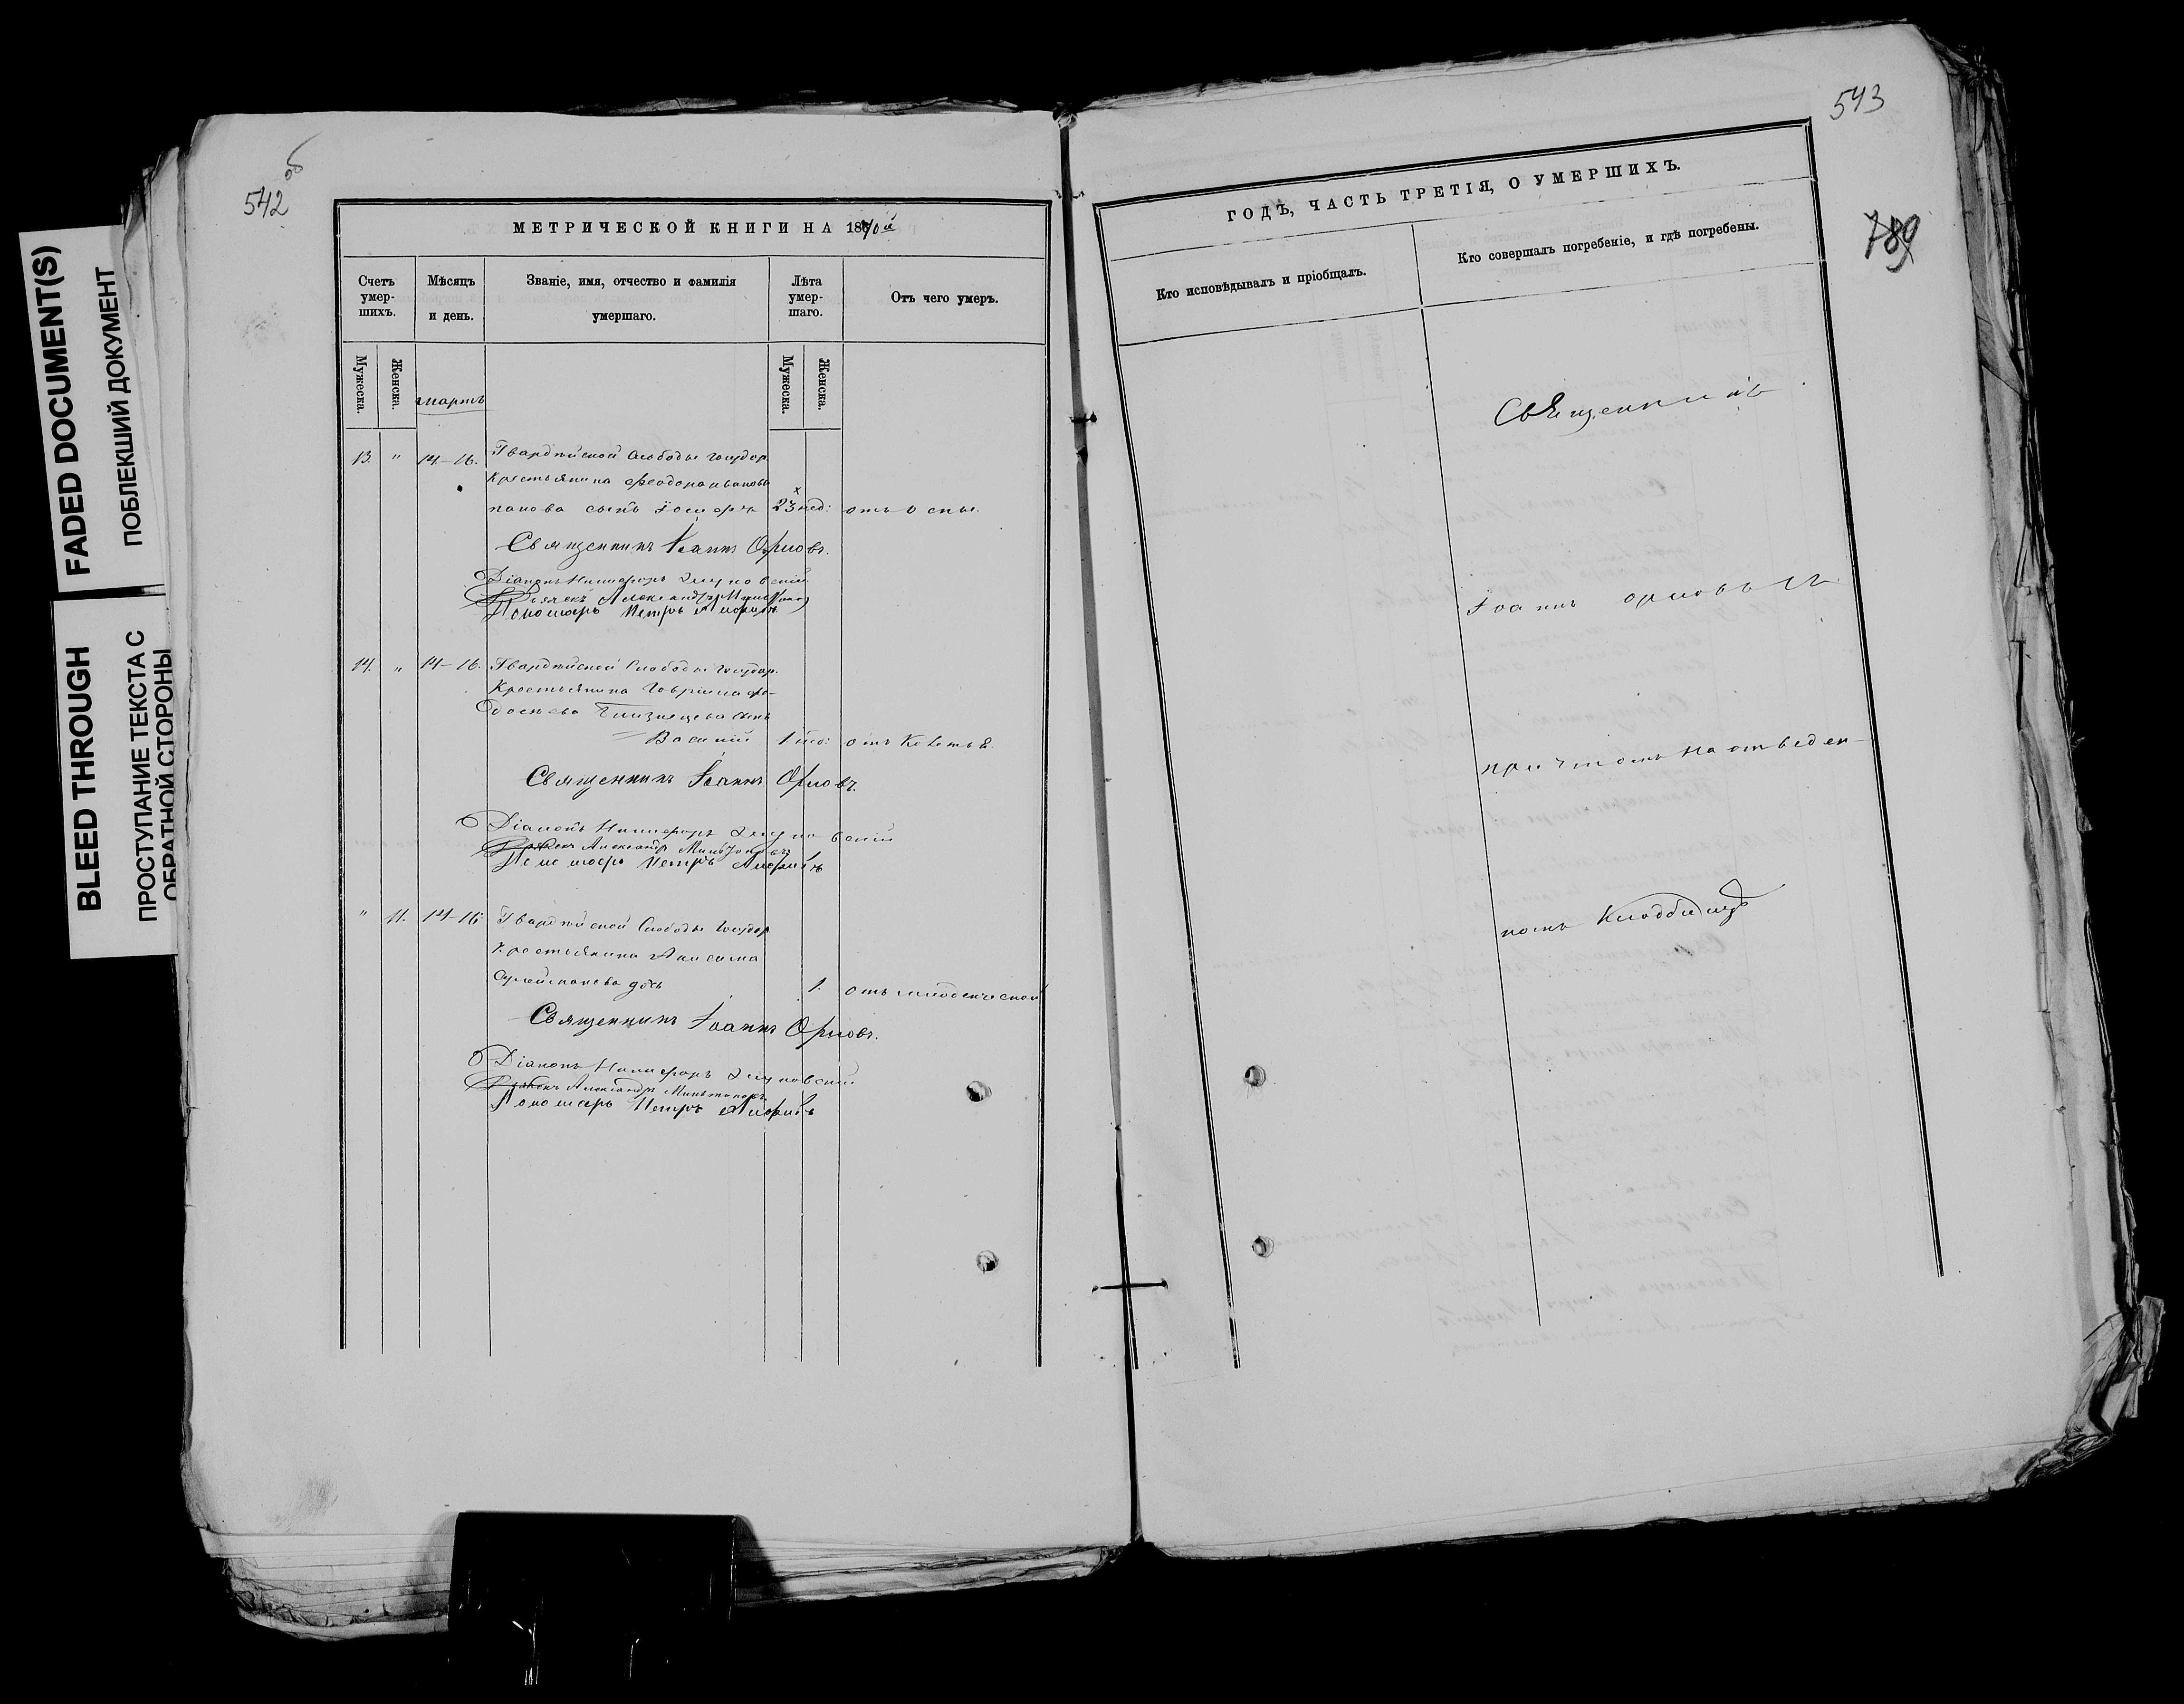 FADED DOCUMENT(S)
ПОБЛЕКШИЙ ДОКУМЕНТ
BLEED THROUGH
ПРОСТУПАНИЕ ТЕКСТА С
ОБРАТНОЙ СТОРОНЫ
542 об
МЕТРИЧЕСКОЙ КНИГИ НА 1870й
Счетъ умер-шихъ.
Мѣсяцъ и день.
Званіе, имя, отчество и фамилія умершаго.
Лѣта умер-шаго.
Отъ чего умеръ.
Мужеска.
Женска.
мартъ
Мужеска.
Женска.
13. " 14–16. Гвардѣйской Слободы госудор.
Крестьянина Феодора иванова
попова сынъ 23х нед: отъ оспы.
Священникъ Іоаннъ Орловъ.
Діаконъ Никифоръ
Дьячекъ Александръ
Пономарь Петръ
14. " 14–16. Гвардѣйской Слободы госудор.
Крестьянина Гавріила Фе-
сынъ
Василій 1 нед:
Священникъ Іоаннъ Орловъ.
Діаконъ Никифоръ
Дьячекъ Александръ
Пономарь Петръ
" 11. 14–16. Гвардѣйской Слободы госудор
Крестьянина
дочь 1. отъ младенческой
Священникъ Іоаннъ Орловъ.
Діаконъ Никифоръ
Дьячекъ Александръ
Пономарь Петръ
543
789
ГОДЪ, ЧАСТЬ ТРЕТІЯ, О УМЕРШИХЪ.
Кто исповѣдывалъ и пріобщалъ.
Кто совершалъ погребеніе, и гдѣ погребены.
Священникъ
Іоаннъ орловъ съ
причтомъ на отведен-
номъ кладбищѣ